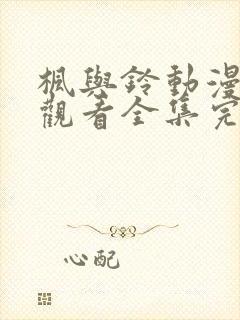 楓與鈴動漫
觀看全集完
心配